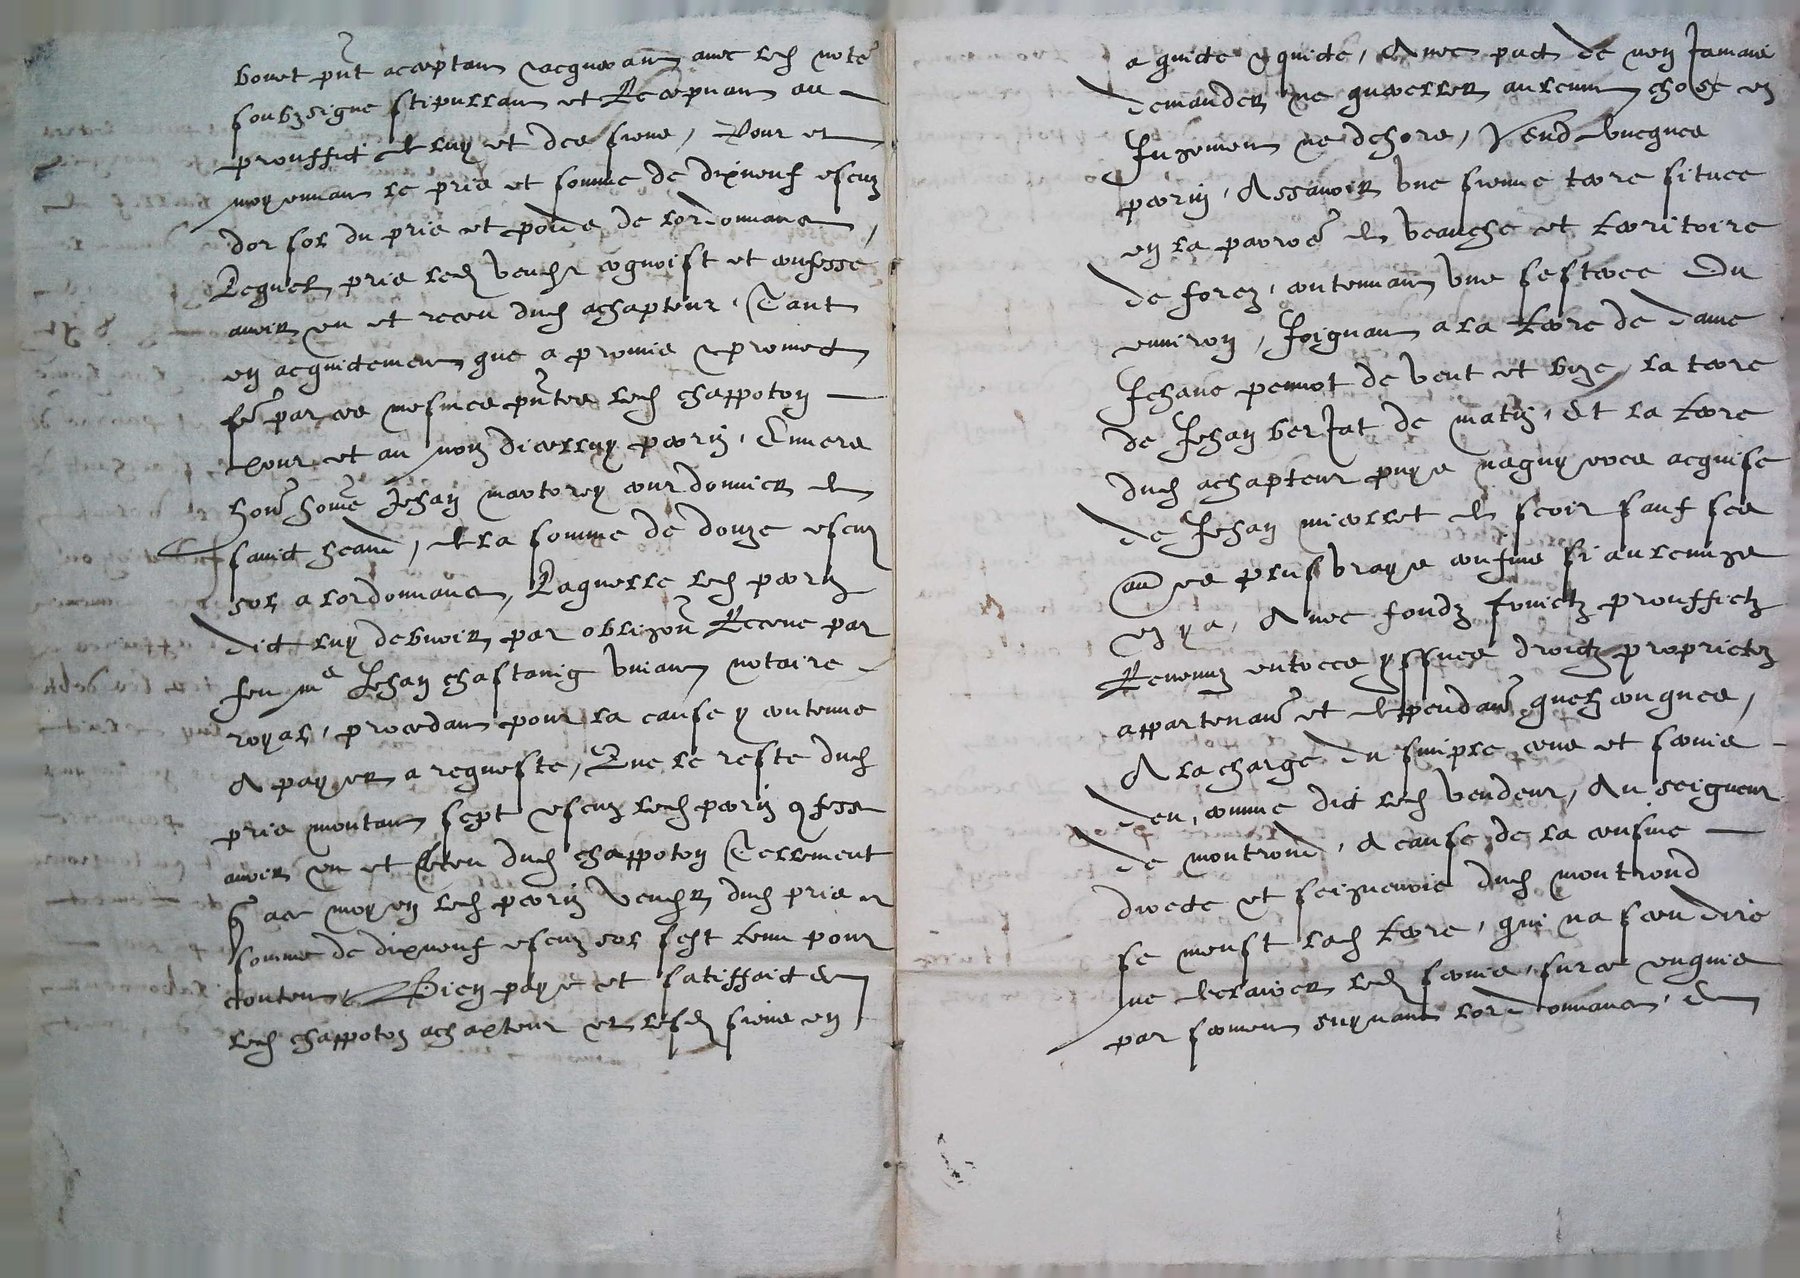 bouet pnt acceptant & acquerant avec led note
soubzsigne stipullant et Recepvant au
prouffict de luy et des siens, Pour et
moyennant le pris et somme de dixneuf escuz
dor sol du pris et poidz de lordonnance,
Lequel pris led vendr cognoist et confesse
avoir eu et receu dud achapteur, Tant
en acquictement que a promis & promect
fe par ces mesmes pntes led chappoton
pour et au nom dicelluy perrin, Envers
honn home Jehan martorey courdonnier de
sainct heand, de la somme de douze escuz
sol a lordonnance, Laquelle led perrin
dict luy debvoir par obligaon Receue par
feu me Jehan chastaing vivant notaire
royal, procedant pour la cause y contenue
A payer a requeste, Que le reste dud
pris montant sept escuz led perrin 9fesse
avoir eu et Receu dud chappoton Tellement
q au moyen led perrin vendr dud pris et
somme de dixneuf escuz sol sest tenu pour
content, Bien paye et satisffaict &
led chappoton achapteur et lesd siens en
a quicte & quicte, Avec pact de non Jamais
demander ne quereller aulcune chose en
Jugement ne dehors, Vend lucques
perrin, Assavoir une sienne terre situee
en la parroe de veauche et territoire
de forez, contenant une sesteree Du
environ, Joignant a la terre de dame
Jehane pennot de vent et bize, la terre
de Jehan berjat de matin, Et la terre
dud achapteur puys naguyeres acquise
de Jehan micollet de soir sauf ses
aues plus vrays confins si aulcungs
en y a, Avec fondz fruictz prouffictz
Revenuz entrees yssues droictz proprietez
appartenances et deppendances quelzconques,
A la charge du simple cens et servis
deu, comme dict led vendeur, Au seigneur
de montrond, A cause de la censive
directe et seigneurie dud montrond
se meust lad terre, qui na sceu dire
ne declairer led servis, surce enquis
par serment suyvant lordonnance, &